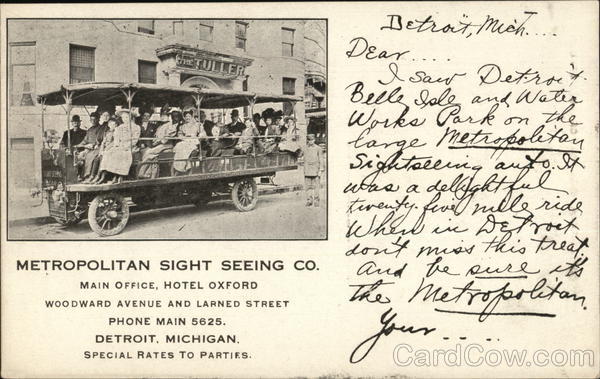 THE TULLER
METROPOLITAN SIGHT SEEING CO.
MAIN OFFICE, HOTEL OXFORD
WOODWARD AVENUE AND LARNED STREET
PHONE MAIN 5625.
DETROIT, MICHIGAN.
SPECIAL RATES TO PARTIES.
Detroit, Mich....
Dear....
I saw Detroit
Belle Isle and Water
Works Park on the
large Metropolitan
Sightseeing auto. It
was a delightful
twenty-five mile ride
When in Detroit
don't miss this treat
And be sure it's
the Metropolitan.
Your.......
CardCow.com